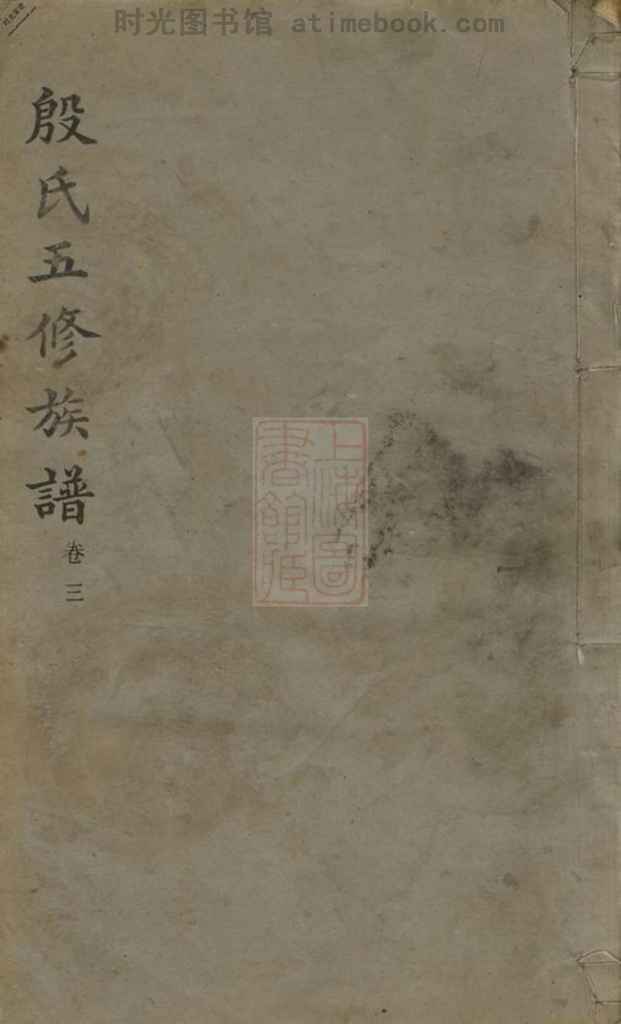 时光图书馆 atimebook.com
殷氏五修族譜
卷三
上海圖
書館藏